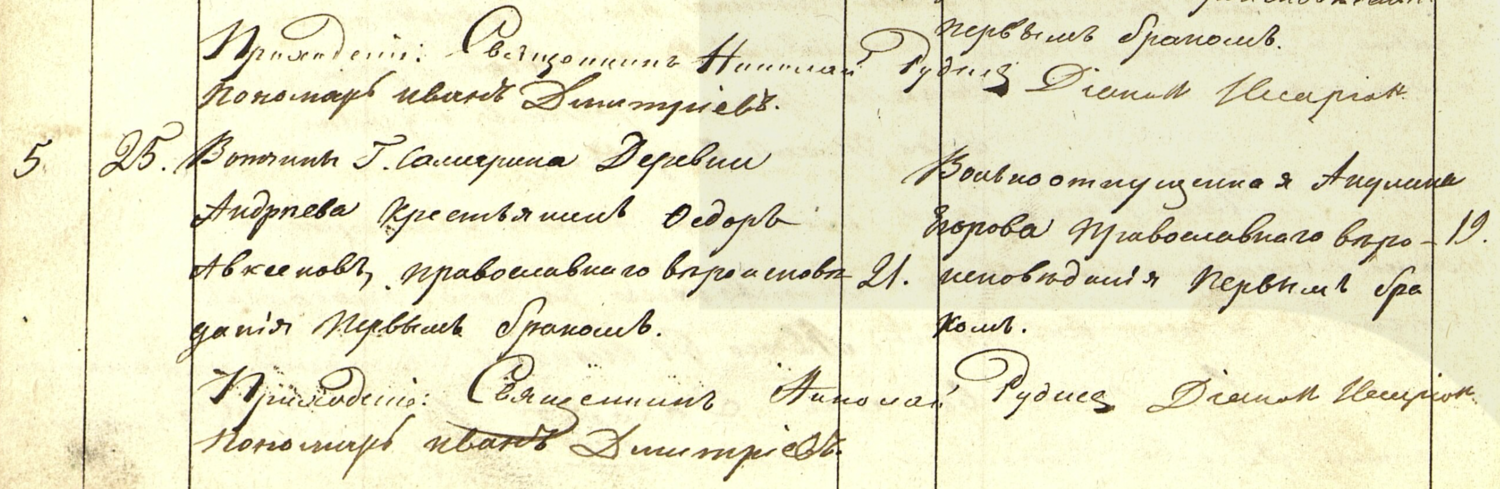 первымъ бракомъ.
Приходскіе: Священникъ Николай Рудневъ Діаконъ
Пономарь Иванъ Дмитріевъ.
5 25. Вотчины Г. Самарина Деревни
Андреева Крестьянинъ Ѳедоръ
Авксеновъ, православнаго вѣроисповѣ- 21.
данія первымъ бракомъ.
Вольноотпущенная Акулина
Егорова православнаго вѣро- 19.
исповѣданія первымъ бра
комъ.
Священникъ Николай Діаконъ
Пономарь Иванъ Дмитріевъ.